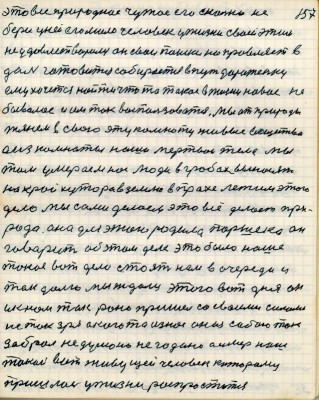 157
это всё природное чужое его сказки не
бери у ней сполна человек у жизни своей этим
не удовлетворили он свои пошли направляет в
даль готовится собирается в путь дорогеньку
ему хочется найти что то такое в жизни новое не
бывалое и им так воспользоваться, мы от природы
тянем в своего эту комнату живые вещества
а из комнаты наше мертвое тело мы
там умираем нас люди в гробах выносят
на край кутора в землю в прахе лежим этого
дело мы сами делаем это всё делает при-
рода она для этого родила паршека он
говорит об этом деле это было наше
такое вот дело стоять нам в очереди и
так долго мы ждали этого вот дня он
к нам так рано пришел со своими силами
не так зря а кого то из нас он из собою так
забрал не думано не гадано а мир наш
такой вот живущей человек которому
пришлось у жизни распроститься